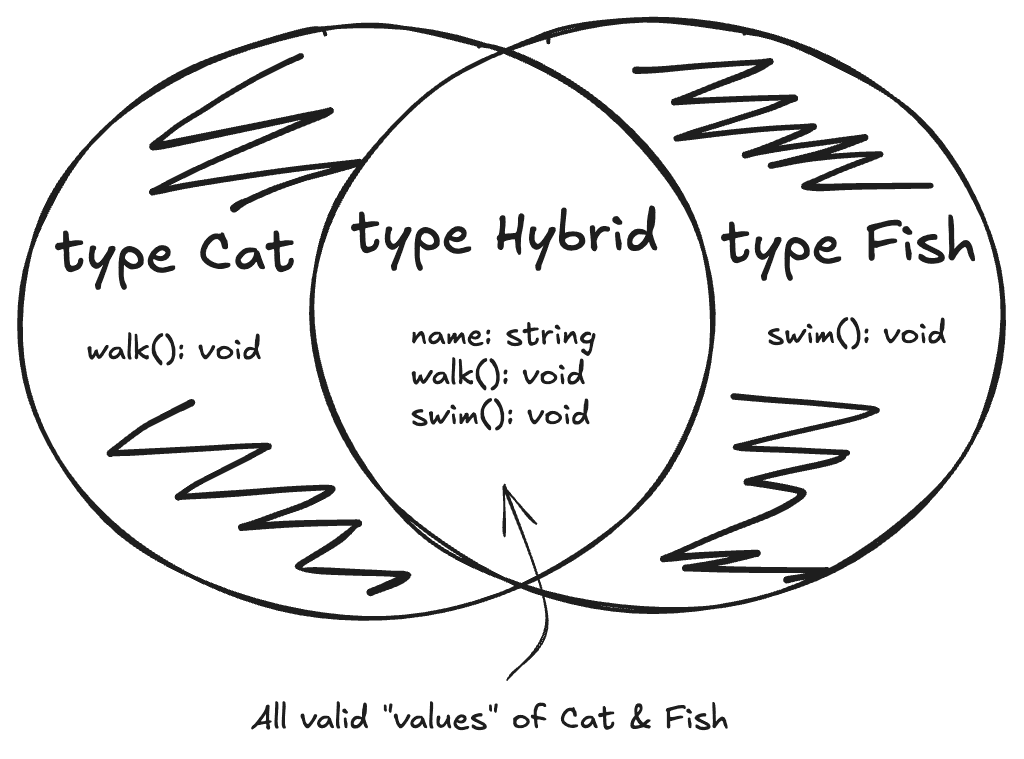 type Cat
walk(): void
type Hybrid
name: string
walk(): void
swim(): void
type Fish
swim(): void
All valid "values" of Cat & Fish